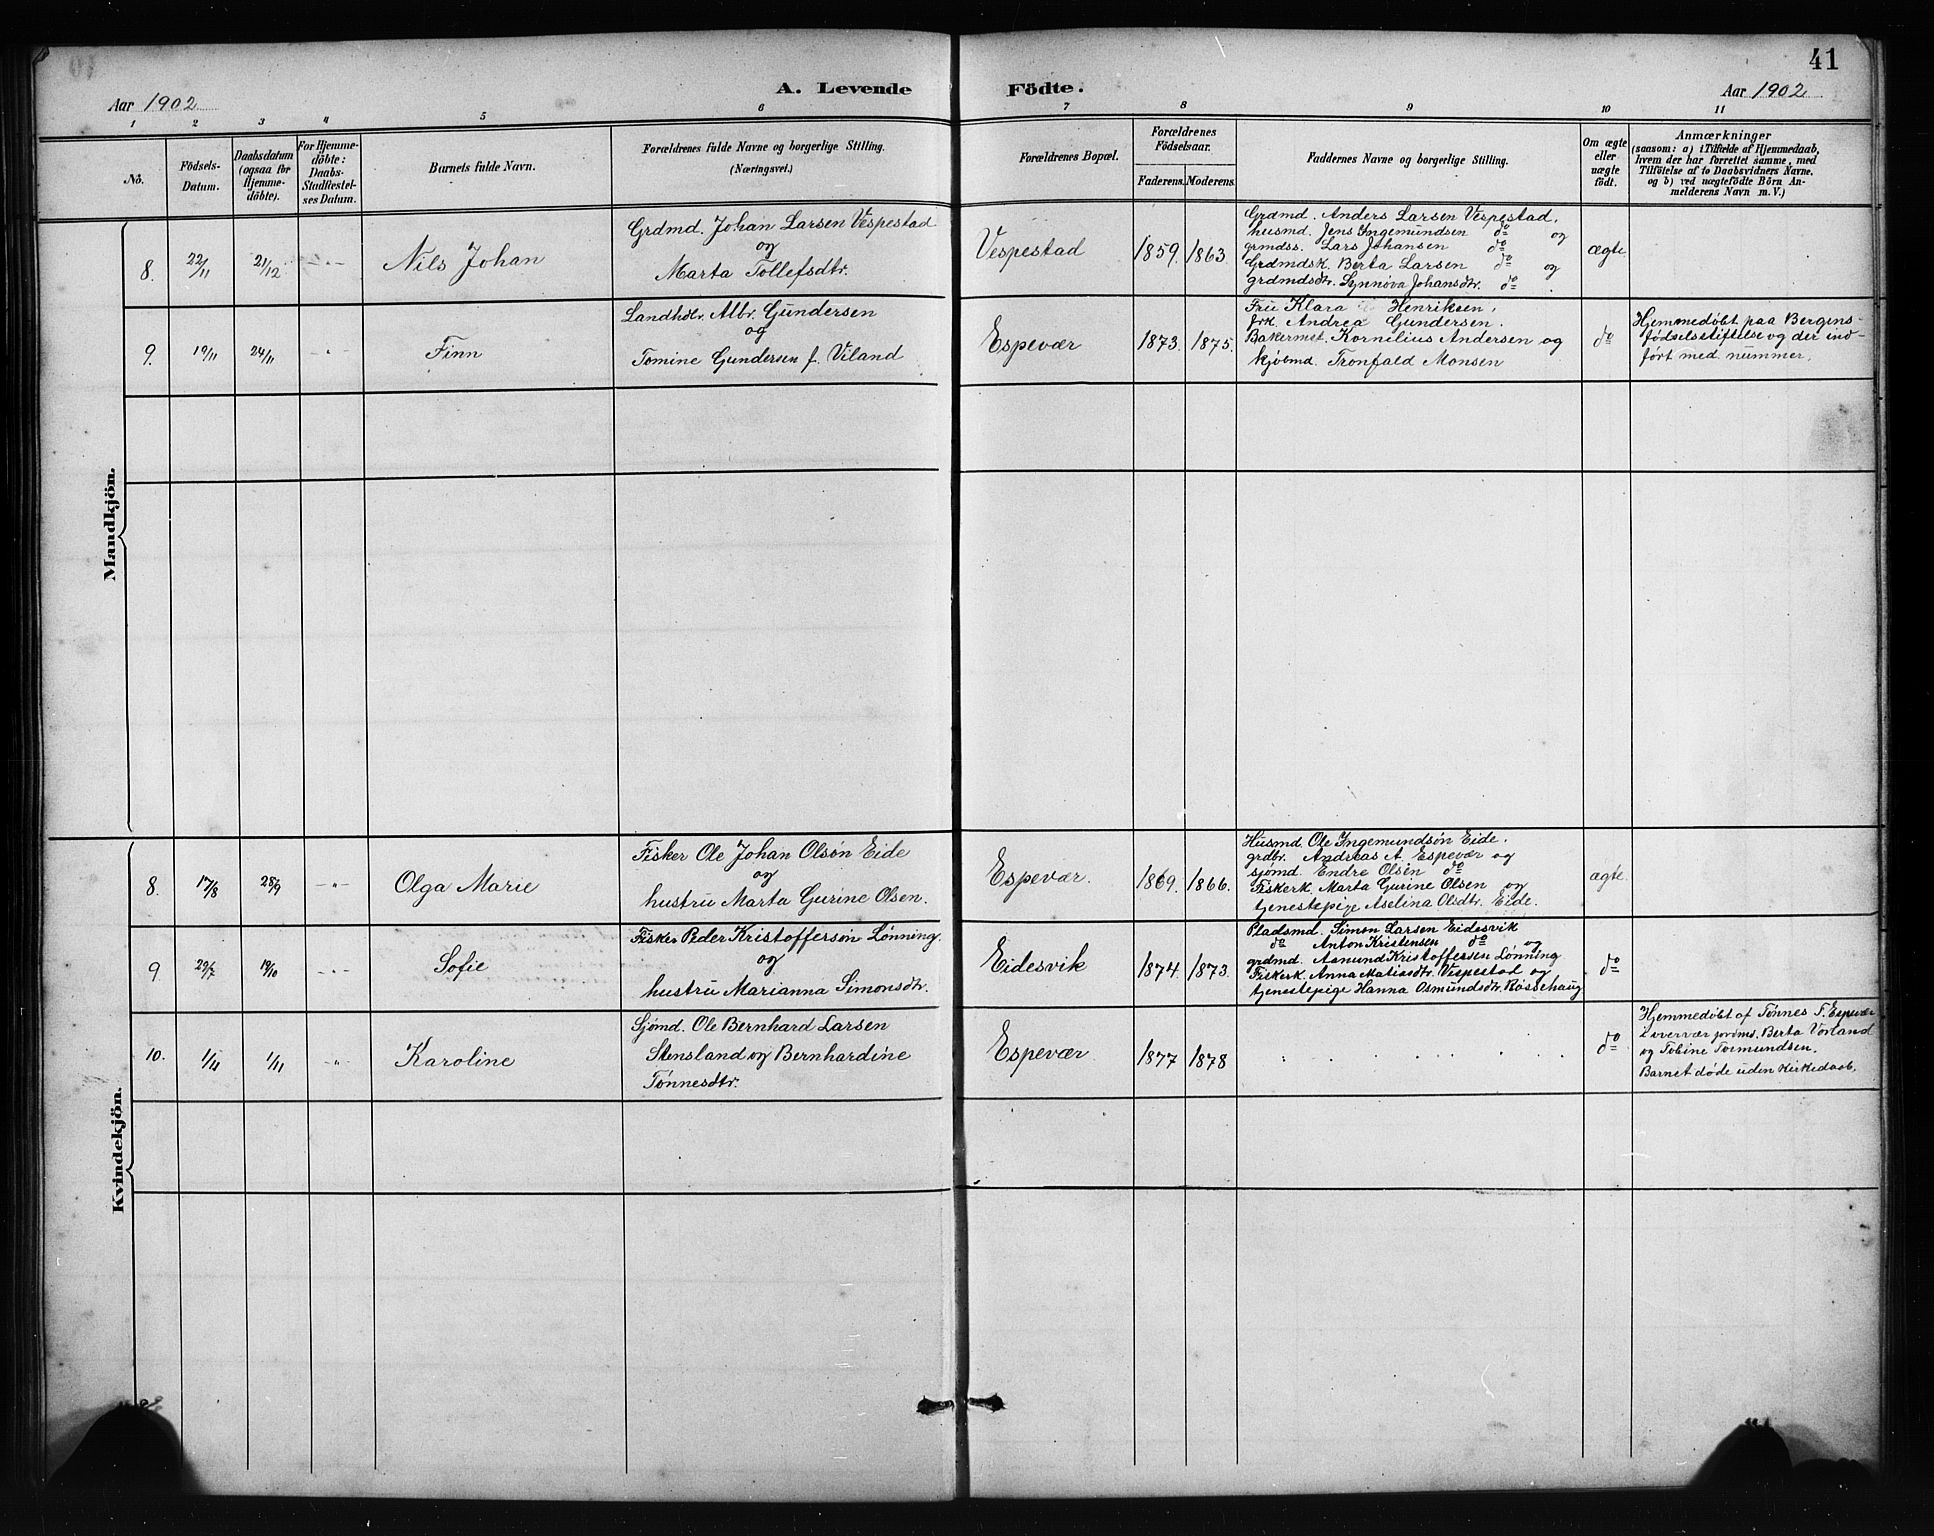 41
Aar 1902
A. Levende Födte.
Aar 1902
1 2 3 4 5 6 7 8 9 10 11
No.
Födsels-
Datum.
Daabsdatum
(ogsaa for
Hjemme-
døbte).
For Hjemme-
døbte:
Daabs-
Stadfæstel-
ses Datum.
Barnets fulde Navn.
Forældrenes fulde Navne og borgerlige Stilling.
(Næringsvei.)
Forældrenes Bopæl.
Forældrenes
Födselsaar.
Faderens. Moderens.
Faddernes Navne og borgerlige Stilling.
Om ægte
eller
uægte
født.
Anmærkninger
(saasom: a) i Tilfælde af Hjemmedaab,
hvem der har forrettet samme, med
Tilföielse af to Daabsvidners Navne,
og b) ved uægtefödte Börn An-
melderens Navn m. V.)
Mandkjön.
8.
22/11
21/12
Nils Johan
Grdmd. Johan Larsen Vespestad
og
Marta Tollefsdtr.
Vespestad
1859. 1863
Grdmd. Anders Larsen Vespestad,
husmd. Jens Ingemundsen do og
grmdss. Lars Johansen do
Grdmdsk. Berta Larsen do og
grdmdsdtr. Synnøva Johansdtr. do.
ægte
9.
19/11
24/11
Finn
Landhdlr. Albr. Gundersen
og
Tomine Gundersen f. Viland
Espevær
1873. 1875.
Fru Klara Henriksen,
frk. Andrea Gundersen.
Bakermst. Kornelius Andersen og
kjøbmd. Tronfald Monsen
do
Hjemmedøbt paa Bergens-
fødselsstiftelse og der ind-
ført med nummer.
Kvindekjön.
8.
17/8
28/9
Olga Marie
Fisker Ole Johan Olsøn Eide
og
hustru Marta Gurine Olsen.
Espevær.
1869. 1866.
Husmd Ole Ingemundsøn Eide.
grdbr. Andreas A. Espevær og
sjømd. Endre Olsen do
Fiskerk. Marta Gurine Olsen og
tjenestepige Aselina Olsdtr. Eide.
ægte.
9
29/7
19/10
Sofie
Fisker Peder Kristoffersøn Lønning.
og
hustru Marianna Simonsdtr.
Eidesvik
1874. 1873.
Pladsmd. Simon Larsen Eidesvik
do Anton Kristensen do og
grdmd. Asmund Kristoffersen Lønning
Fiskerk. Anna Matiasdtr. Vespestad og
tjenestepige Hanna Osmundsdtr. Røssehaug
do
10.
1/11
1/11
Karoline
Sjømd. Ole Bernhard Larsen
Stensland og Bernhardine
Tønnesdtr.
Espevær
1877 1878
do
Hjemmedøbt af Tønnes T. Espevær
i overvær jordms. Berta Vorland
og Tobine Tormundsen.
Barnet døde uden kirkedaab.